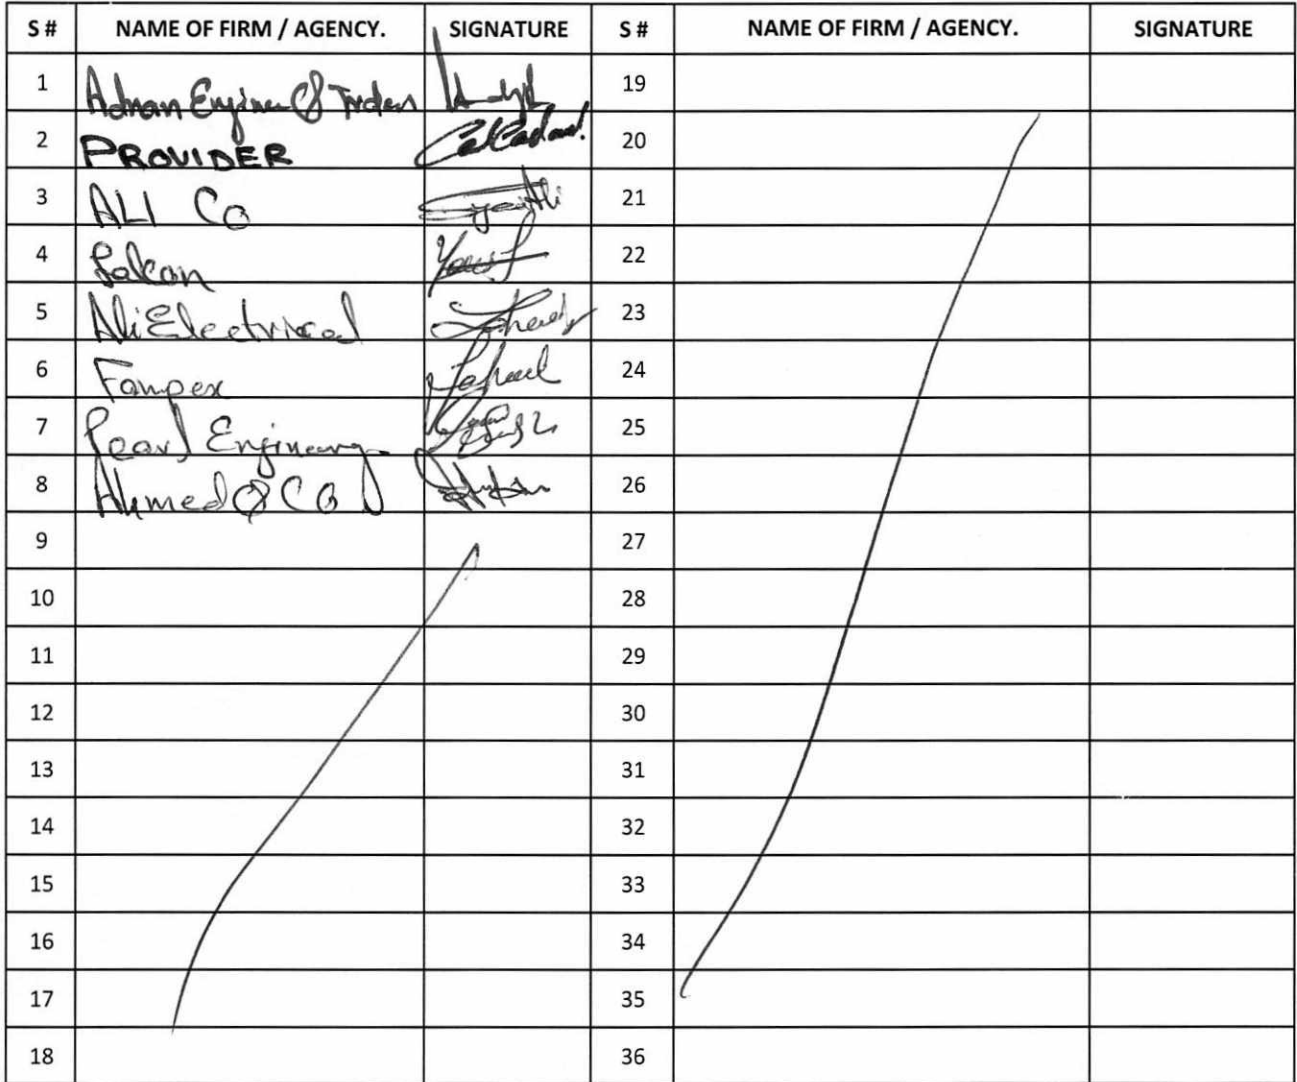 S # NAME OF FIRM / AGENCY. SIGNATURE S # NAME OF FIRM / AGENCY. SIGNATURE
1 Adnan Engine & Traders 19
2 PROVIDER 20
3 ALI Co 21
4 Falcon 22
5 Ali Electrical 23
6 Fampex 24
7 Pearl Enginering 25
8 Ahmed & CO 26
9 27
10 28
11 29
12 30
13 31
14 32
15 33
16 34
17 35
18 36